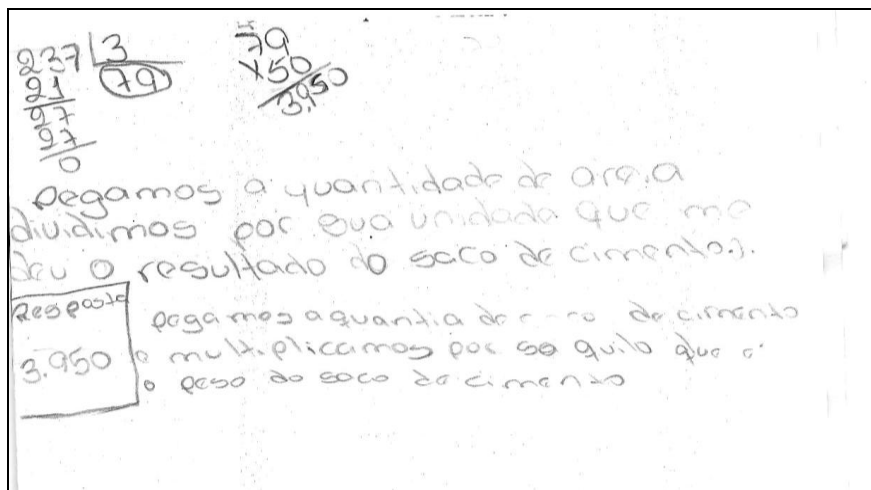 237 | 3
21 79
27
27
0
4
79
x50
3.950
Pegamos a quantidade de areia
dividimos por sua unidada que me
deu o resultado do saco de cimento.
Resposta
3.950
pegamos a quantia de de cimento
e multiplicamos por 50 quilo que é
o peso do saco de cimento